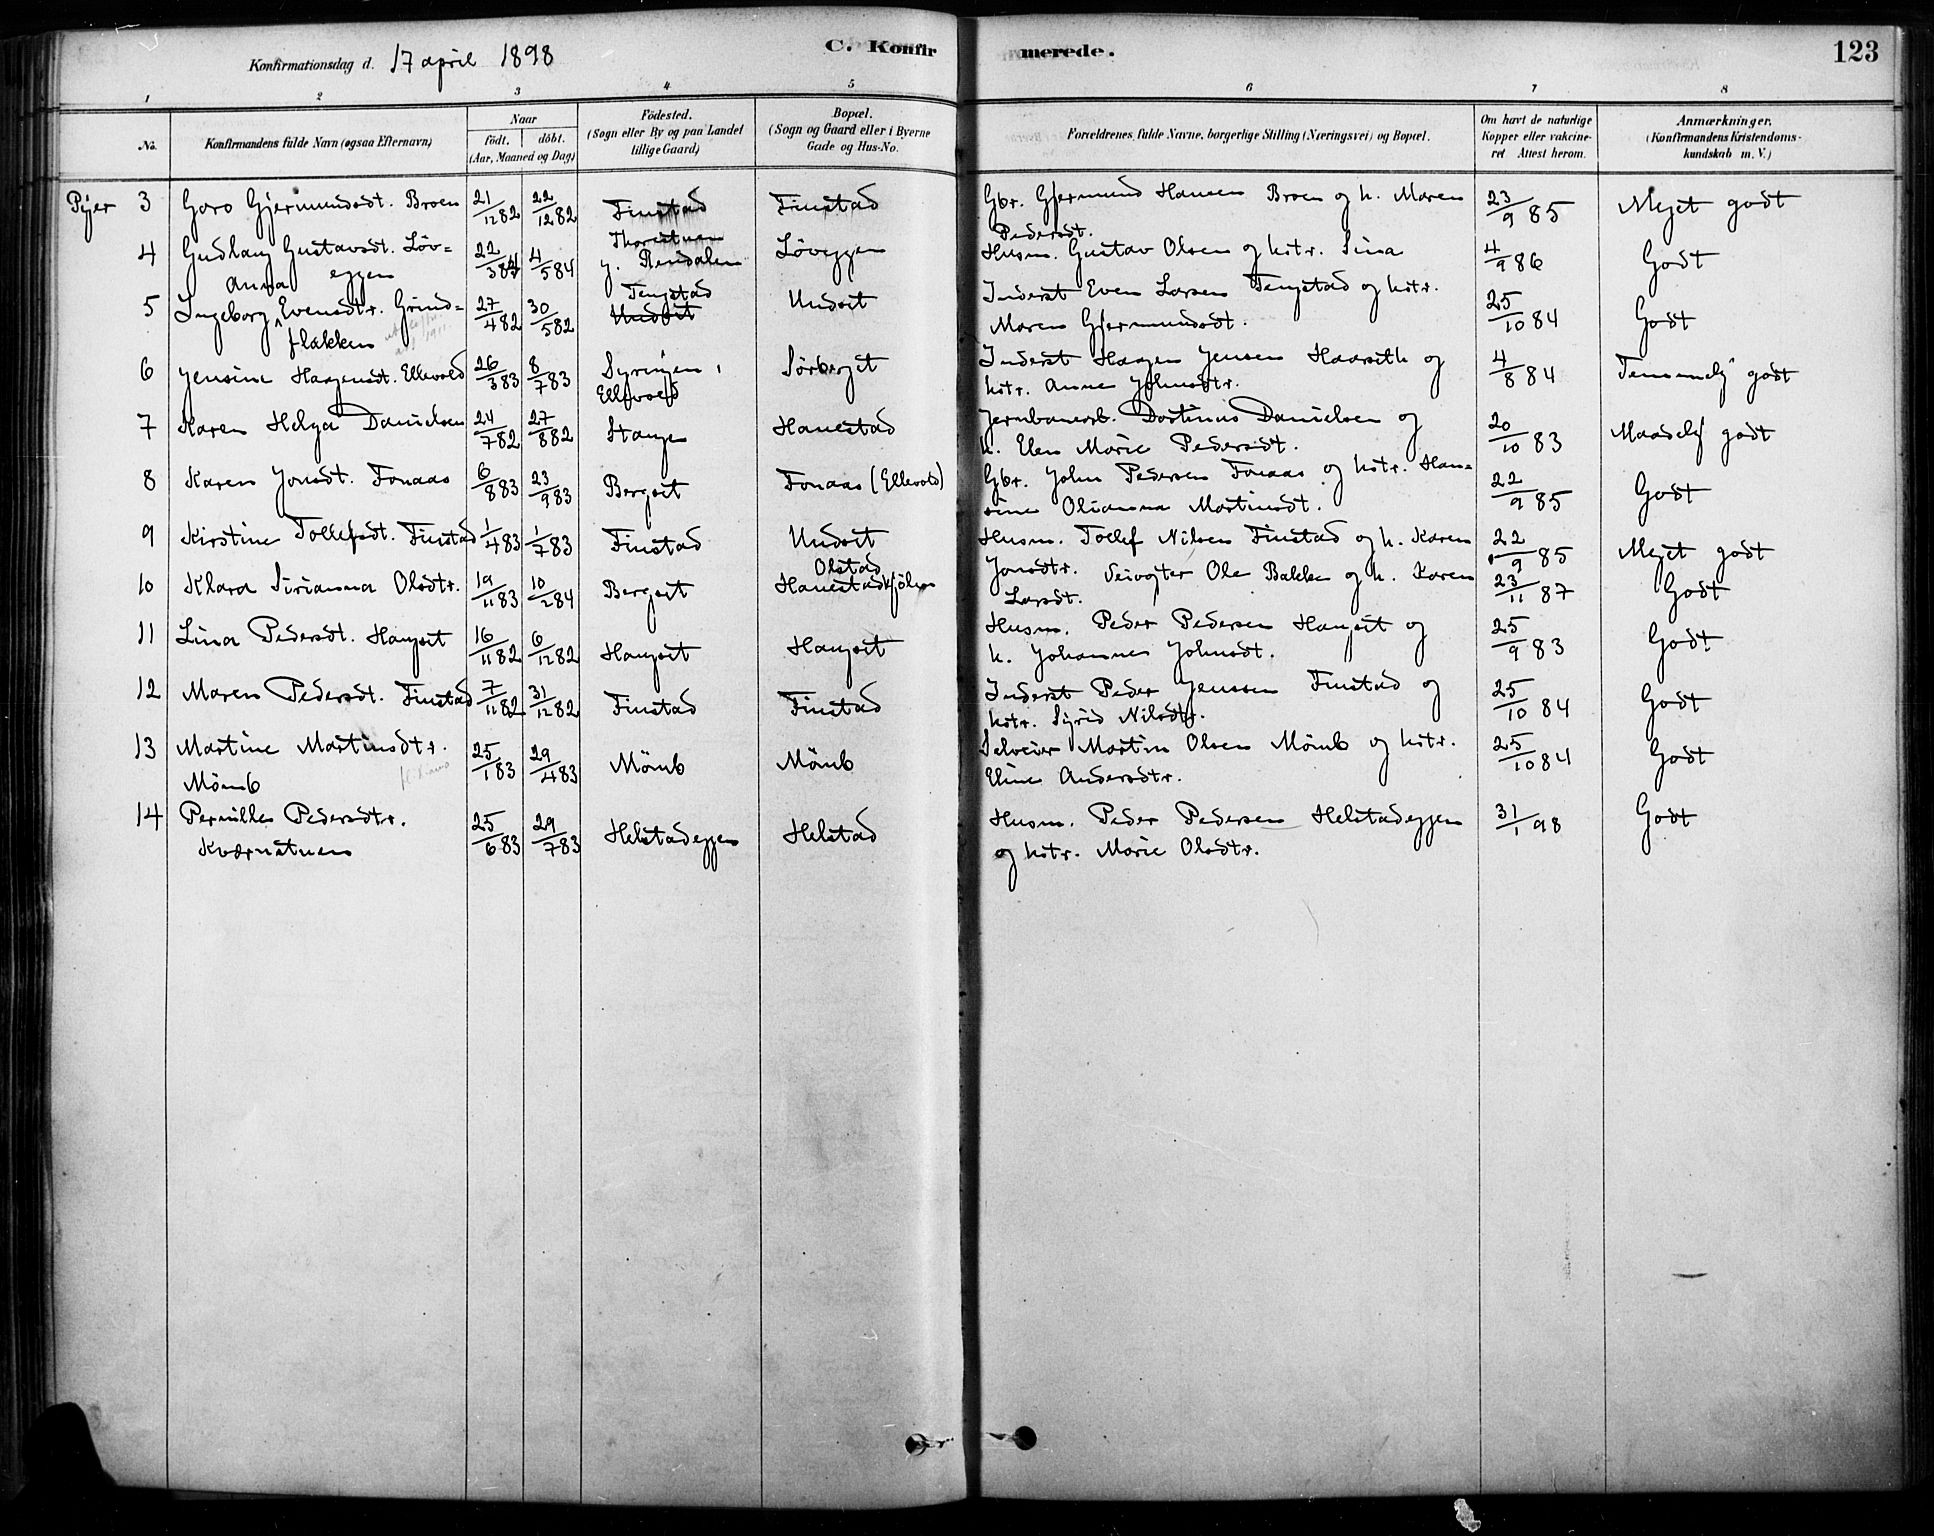 Konfirmationsdag d. 17 april 1898
C. Konfirmerede.
123
1 2 3 4 5 6 7 8
No.
Konfirmandens fulde Navn (ogsaa Efternavn)
Naar
födt. döbt.
(Aar, Maaned og Dag)
Födested.
(Sogn eller By og paa Landet
tillige Gaard)
Bopæl.
(Sogn og Gaard eller i Byerne
Gade og Hus-No.
Forældrenes fulde Navne, borgerlige Stilling (Næringsvei) og Bopæl.
Om havt de naturlige
Kopper eller vakcine-
ret Attest herom.
Anmærkninger,
(Konfirmandens Kristendoms-
kundskab m. V.)
Piger 3 Goro Gjermundsdt. Broen 21/12 82 22/12 82 Finstad Finstad Gbr. Gjermund Hansen Broen og h. Maren
Pedersdt. 23/9 85 Meget godt
4 Gudlaug Gustavsdt. Löv-
eggen 22/3 84 4/5 84 Thorestuen
y. Rendalen Löveggen Husm. Gustav Olsen og kstr. Sina 4/9 86 Godt
5 Ingeborg Anna Evensdtr. Grind-
flakken 27/4 82 30/5 82 Tengstad
Undset Undset Inderst Even Larsen Tengstad og kstr.
Maren Gjermundsdt. 25/10 84 Godt
6 Jensine Haagensdt. Ellevold 26/3 83 8/7 83 Syringen,
Ellevold Sörberget Inderst Haagen Jensen Haarseth og
kstr. Anne Johnsdtr. 4/8 84 Temmelig godt
7 Karen Helga Danielsen 24/7 82 27/8 82 Stange Hanestad Jernbanearb. Dortinus Danielsen og
h. Elen Marie Pedersdt. 20/10 83 Maadelig godt
8 Karen Jonsdt. Fonaas 6/8 83 23/9 83 Bergset Fonaas (Ellevold) Gbr. John Pedersen Fonaas og kstr. Han-
sine Olianna Martinsdt. 22/9 85 Godt
9 Kirstine Tollefsdt. Finstad 1/4 83 1/7 83 Finstad Undset Husm. Tollef Nilsen Finstad og h. Karen
Jonsdtr. 22/9 85 Meget godt
10 Klara Sirianna Olsdtr. 19/11 83 10/2 84 Bergset Olstad
Hanestadkjölen Veivogter Ole Bakken og h. Karen
Larsdt. 23/11 87 Godt
11 Lina Pedersdt. Haugset 16/11 82 6/12 82 Haugset Haugset Husm. Peder Pedersen Haugset og
h. Johanne Johnsdt. 25/9 83 Godt
12 Maren Pedersdt. Finstad 7/11 82 31/12 82 Finstad Finstad Inderst Peder Jenssen Finstad og
kstr. Sigrid Nilsdtr. 25/10 84 Godt
13 Martine Martinsdtr.
Mömb 25/1 83 29/4 83 Mömb Mömb Selveier Martin Olsen Mömb og kstr.
Eline Andersdtr. 25/10 84 Godt
14 Pernille Pedersdtr.
Kværnstuen 25/6 83 29/7 83 Helstadeggen Helstad Husm. Peder Pedersen Helstadeggen
og kstr. Marie Olsdtr. 31/1 98 Godt